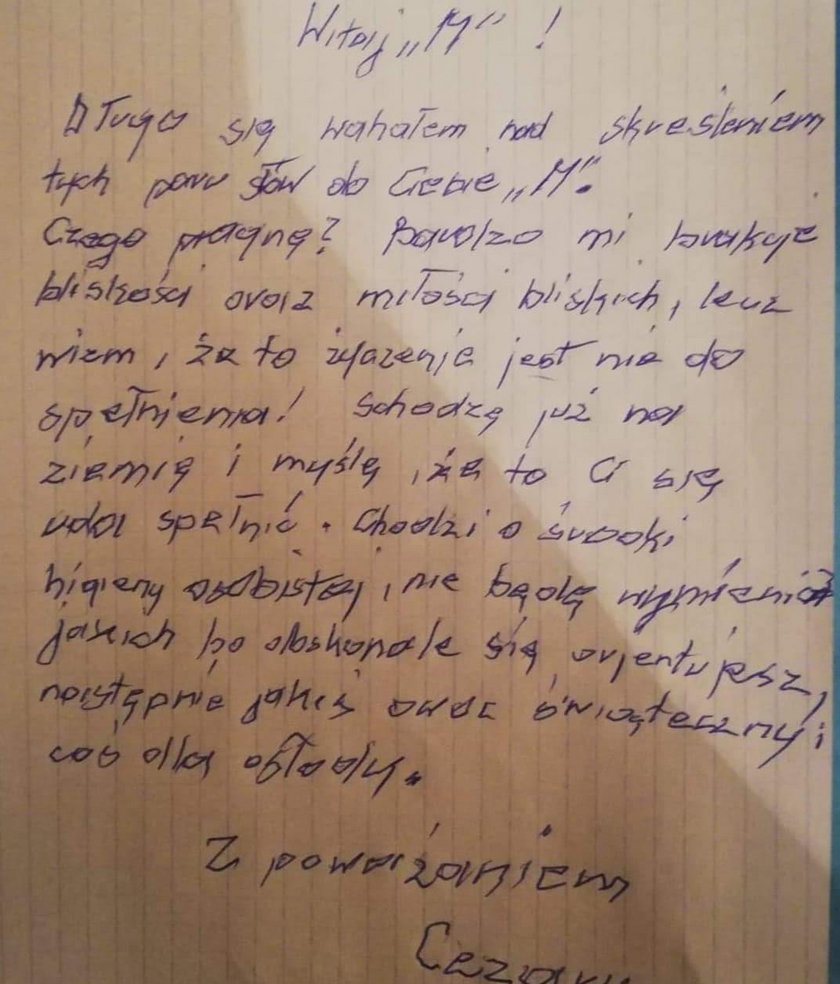 Witaj „M" !
Długo się wahałem nad skreśleniem
tych paru słów do Ciebie „M".
Czego pragnę? Bardzo mi brakuje
bliskości oraz miłości bliskich, lecz
wiem, że to życzenie jest nie do
spełnienia! Schodzę już na
ziemię i myślę, że to Ci się
uda spełnić. Chodzi o środki
higieny osobistej, nie będę wymieniał
jakich bo doskonale się orjentujesz,
następnie jakiś owoc świąteczny i
coś dla osłody.
Z poważaniem
Cezary